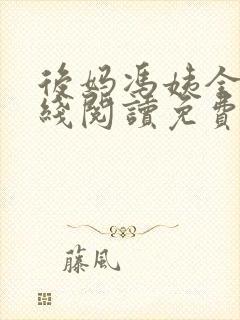 後妈馮姨全
綫閱讀免費
藤風